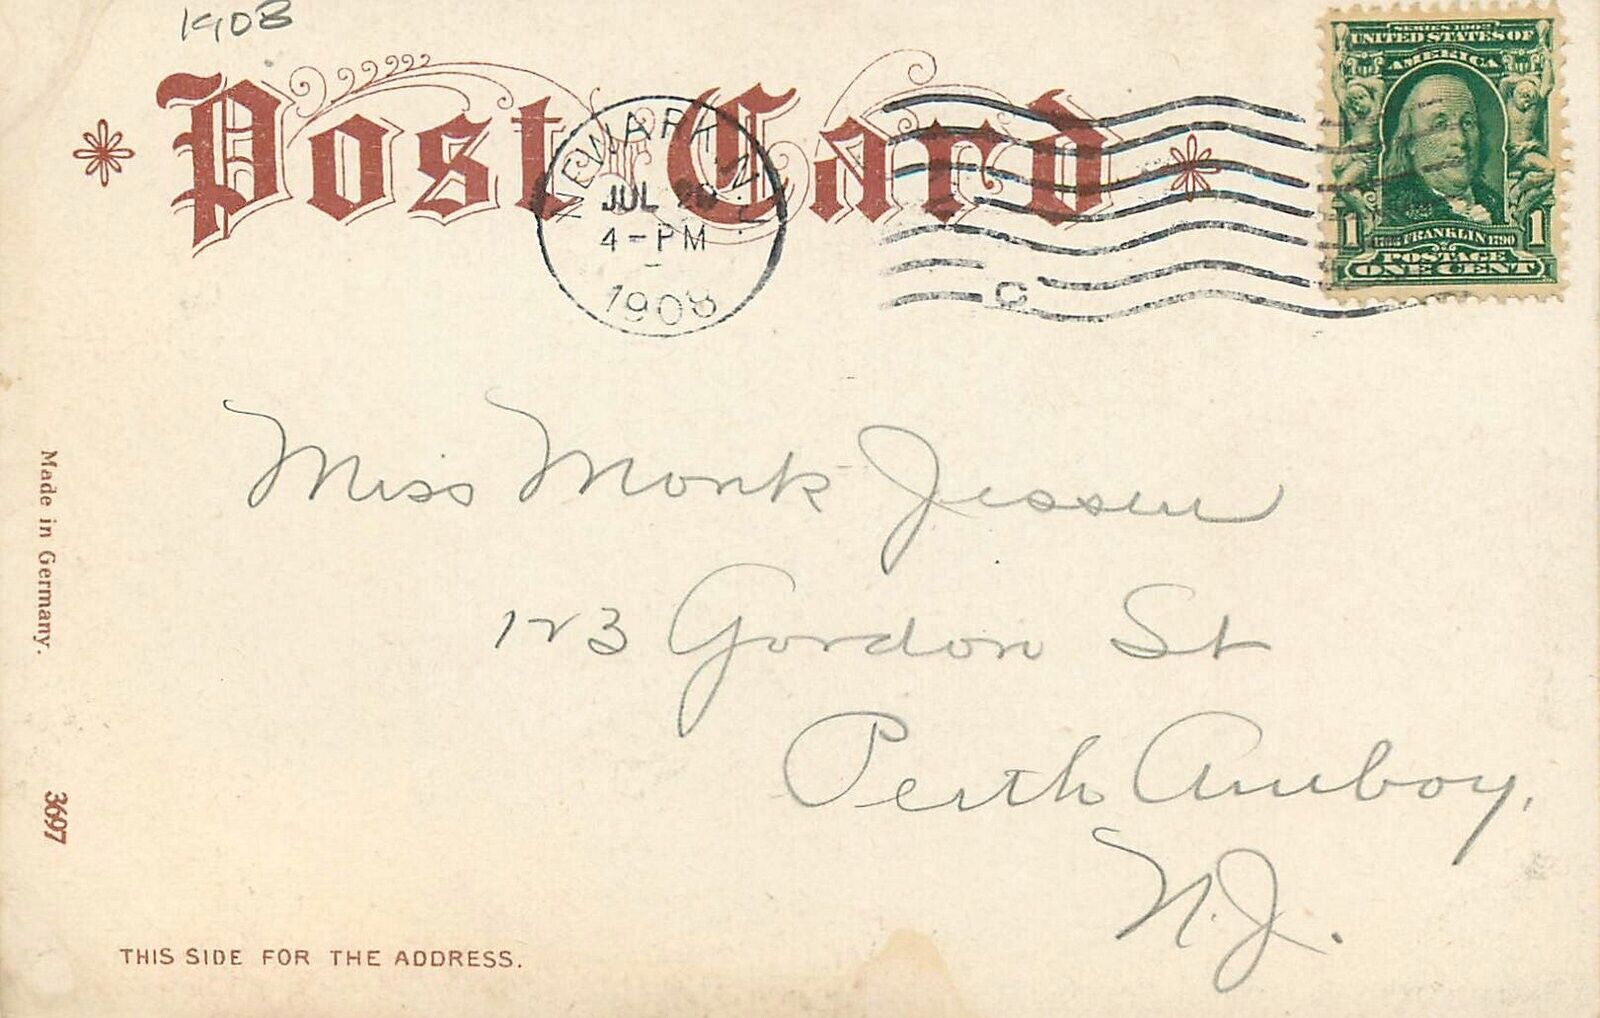 1908
Post Card
NEWARK, N.J.
JUL
4-PM
1908
C
SERIES 1902
UNITED STATES OF
AMERICA
1 1
FRANKLIN 1790
POSTAGE
ONE CENT
Miss Monk Jessen
123 Gordon St
Perth Amboy,
N.J.
Made in Germany.
3697
THIS SIDE FOR THE ADDRESS.